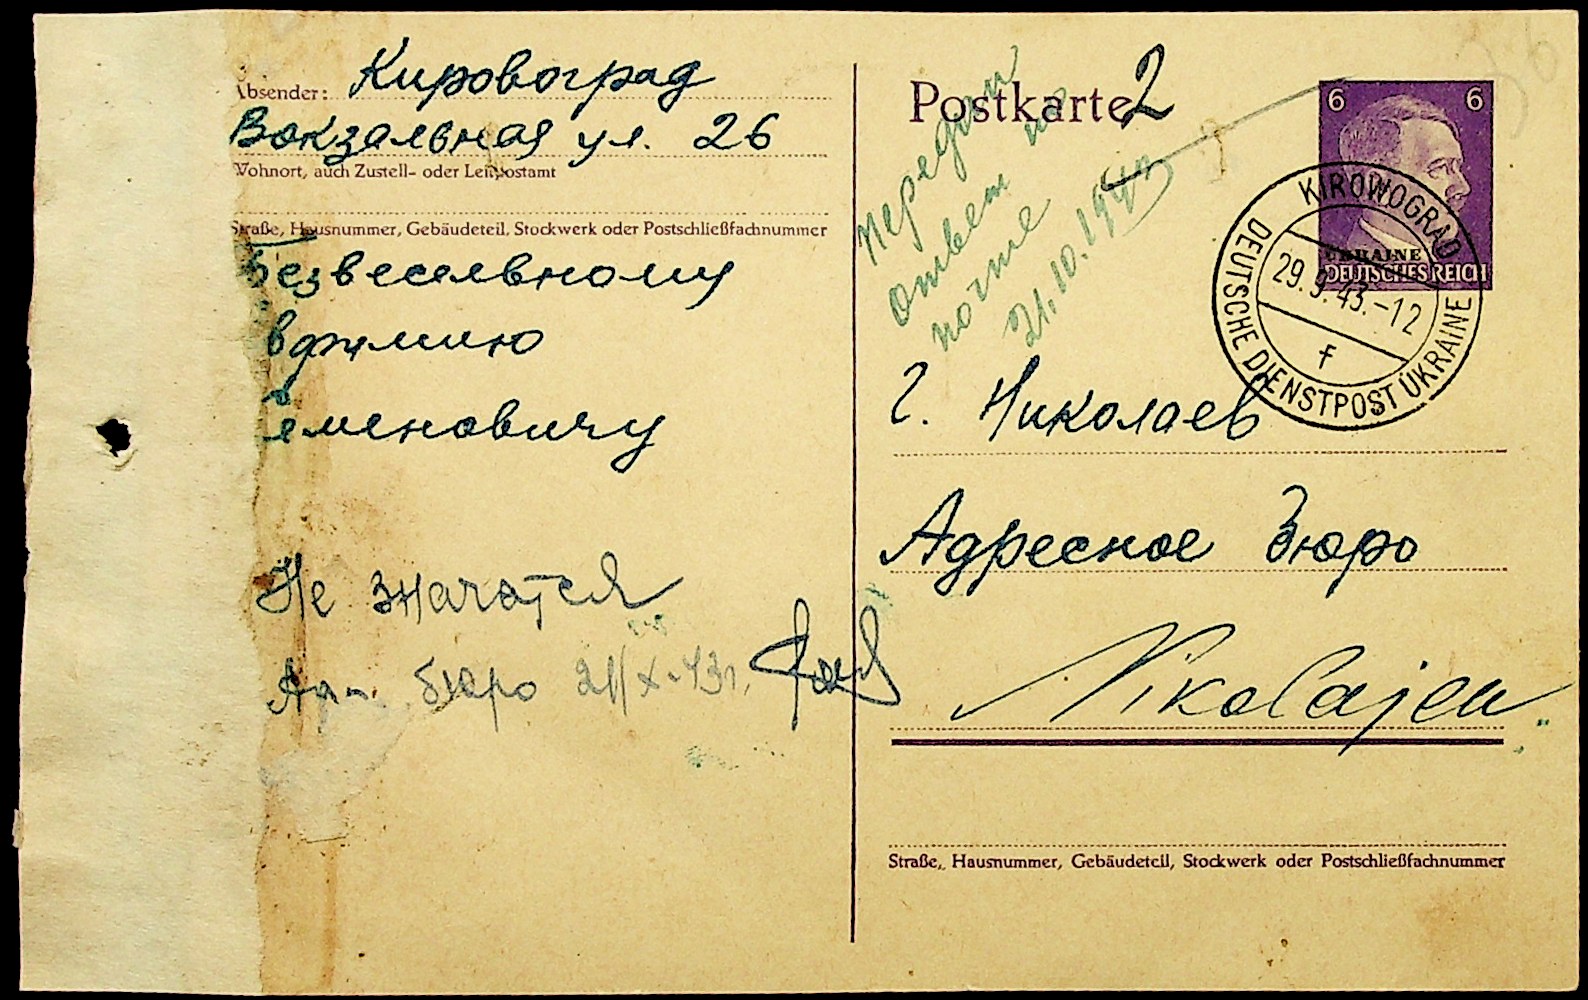 Absender: Кировоград
Вокзальная ул. 26
Wohnort, auch Zustell- oder Leitpostamt
Straße, Hausnummer, Gebäudeteil, Stockwerk oder Postschließfachnummer
Безвесельному
еменовичу
Не значатся
бюро
Postkarte
2
Передан
ответ по
почте
21.10.1943
6 6
UKRAINE
DEUTSCHES REICH
KIROWOGRAD
29.9.43.-12
f
DEUTSCHE DIENSTPOST UKRAINE
г. Николаев
Адресное Бюро
Nikolajew
Straße, Hausnummer, Gebäudeteil, Stockwerk oder Postschließfachnummer